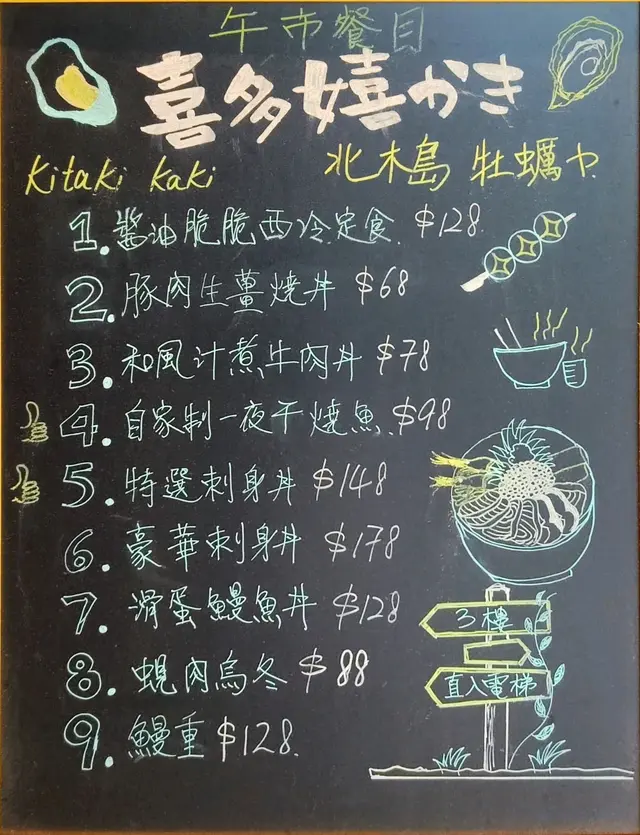 午市餐目
喜多嬉かき
Kitaki Kaki 北木島 牡蠣や
1. 醬油脆脆西冷定食 $128
2. 豚肉生薑燒丼 $68
3. 和風汁煮牛肉丼 $78
4. 自家制一夜干燒魚 $98
5. 特選刺身丼 $148
6. 豪華刺身丼 $178
7. 滑蛋鰻魚丼 $128
8. 蜆肉烏冬 $88
9. 鰻重 $128
3樓
直入電梯